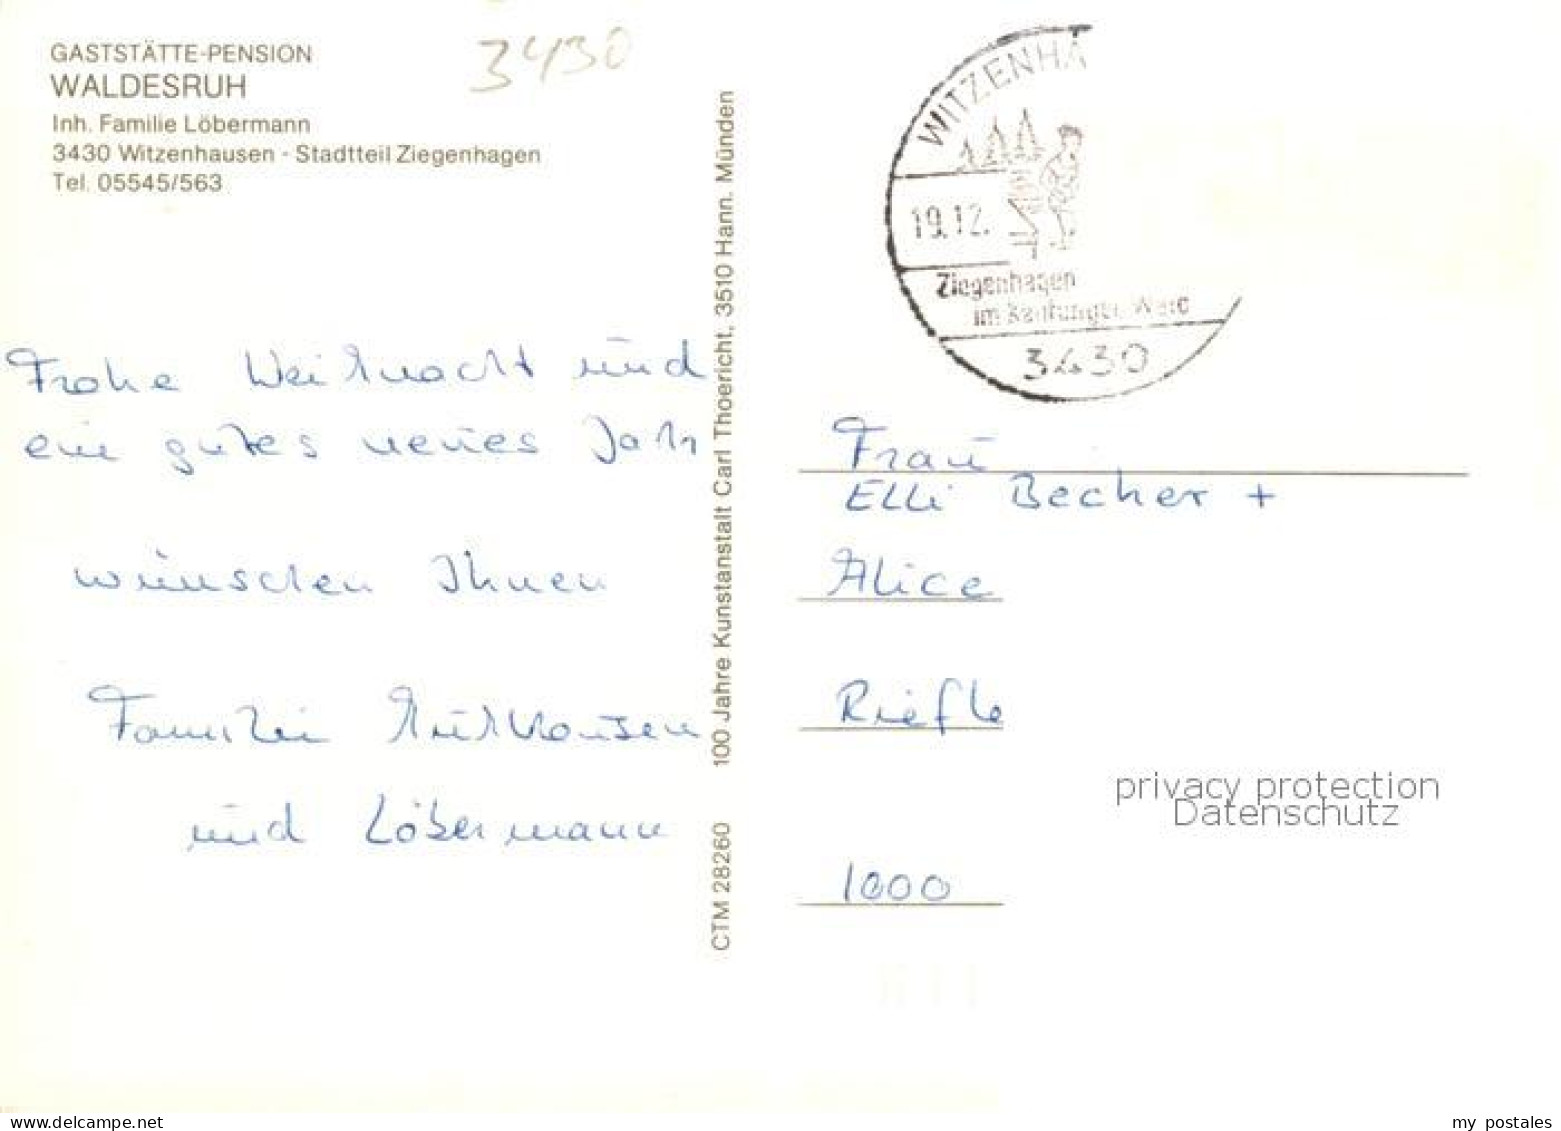 GASTSTÄTTE-PENSION
WALDESRUH
Inh. Familie Löbermann
3430 Witzenhausen - Stadtteil Ziegenhagen
Tel. 05545/563
3430
Frohe Weihnacht und
ein gutes neues Jahr
wünschen Ihnen
Familie
und Löbermann
CTM 28260 100 Jahre Kunstanstalt Carl Thoericht, 3510 Hann. Münden
WITZENHA
19.12.
Ziegenhagen
im Kaufunger Wald
3430
Frau
Elli Becher +
Alice
Riefle
1000
privacy protection
Datenschutz
delcampe.net
my postales